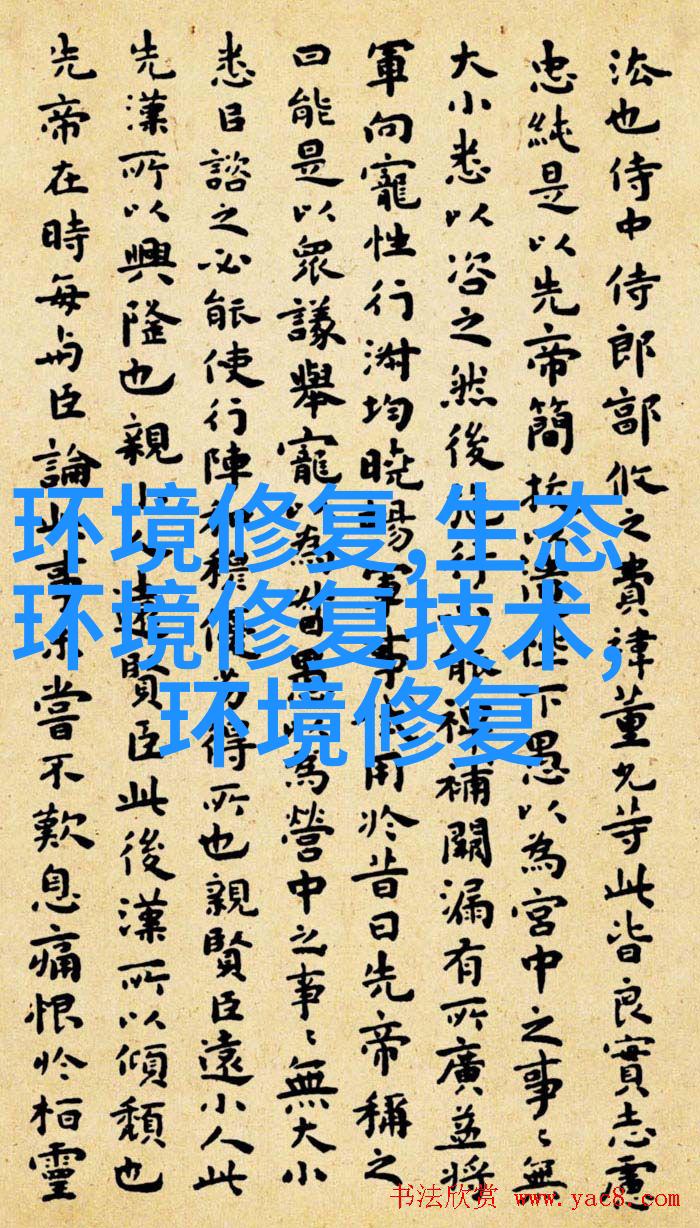 法也侍中侍郎郭攸之費禕董允等此皆良實志慮
忠純是以先帝簡拔以遺陛下愚以為宮中之事〻無
大小悉以咨之然後施行必能裨補闕漏有所廣益將
軍向寵性行淑均曉暢軍事試用於昔日先帝稱之
曰能是以眾議舉寵以為督愚以為營中之事〻無大小
悉以諮之必能使行陣和穆優劣得所也親賢臣遠小人此
先漢所以興隆也親小人遠賢臣此後漢所以傾頹也
先帝在時每與臣論此事未嘗不歎息痛恨於桓靈
环境修复,生态
环境修复技术,
环境修复
书法欣赏 www.yac8.com